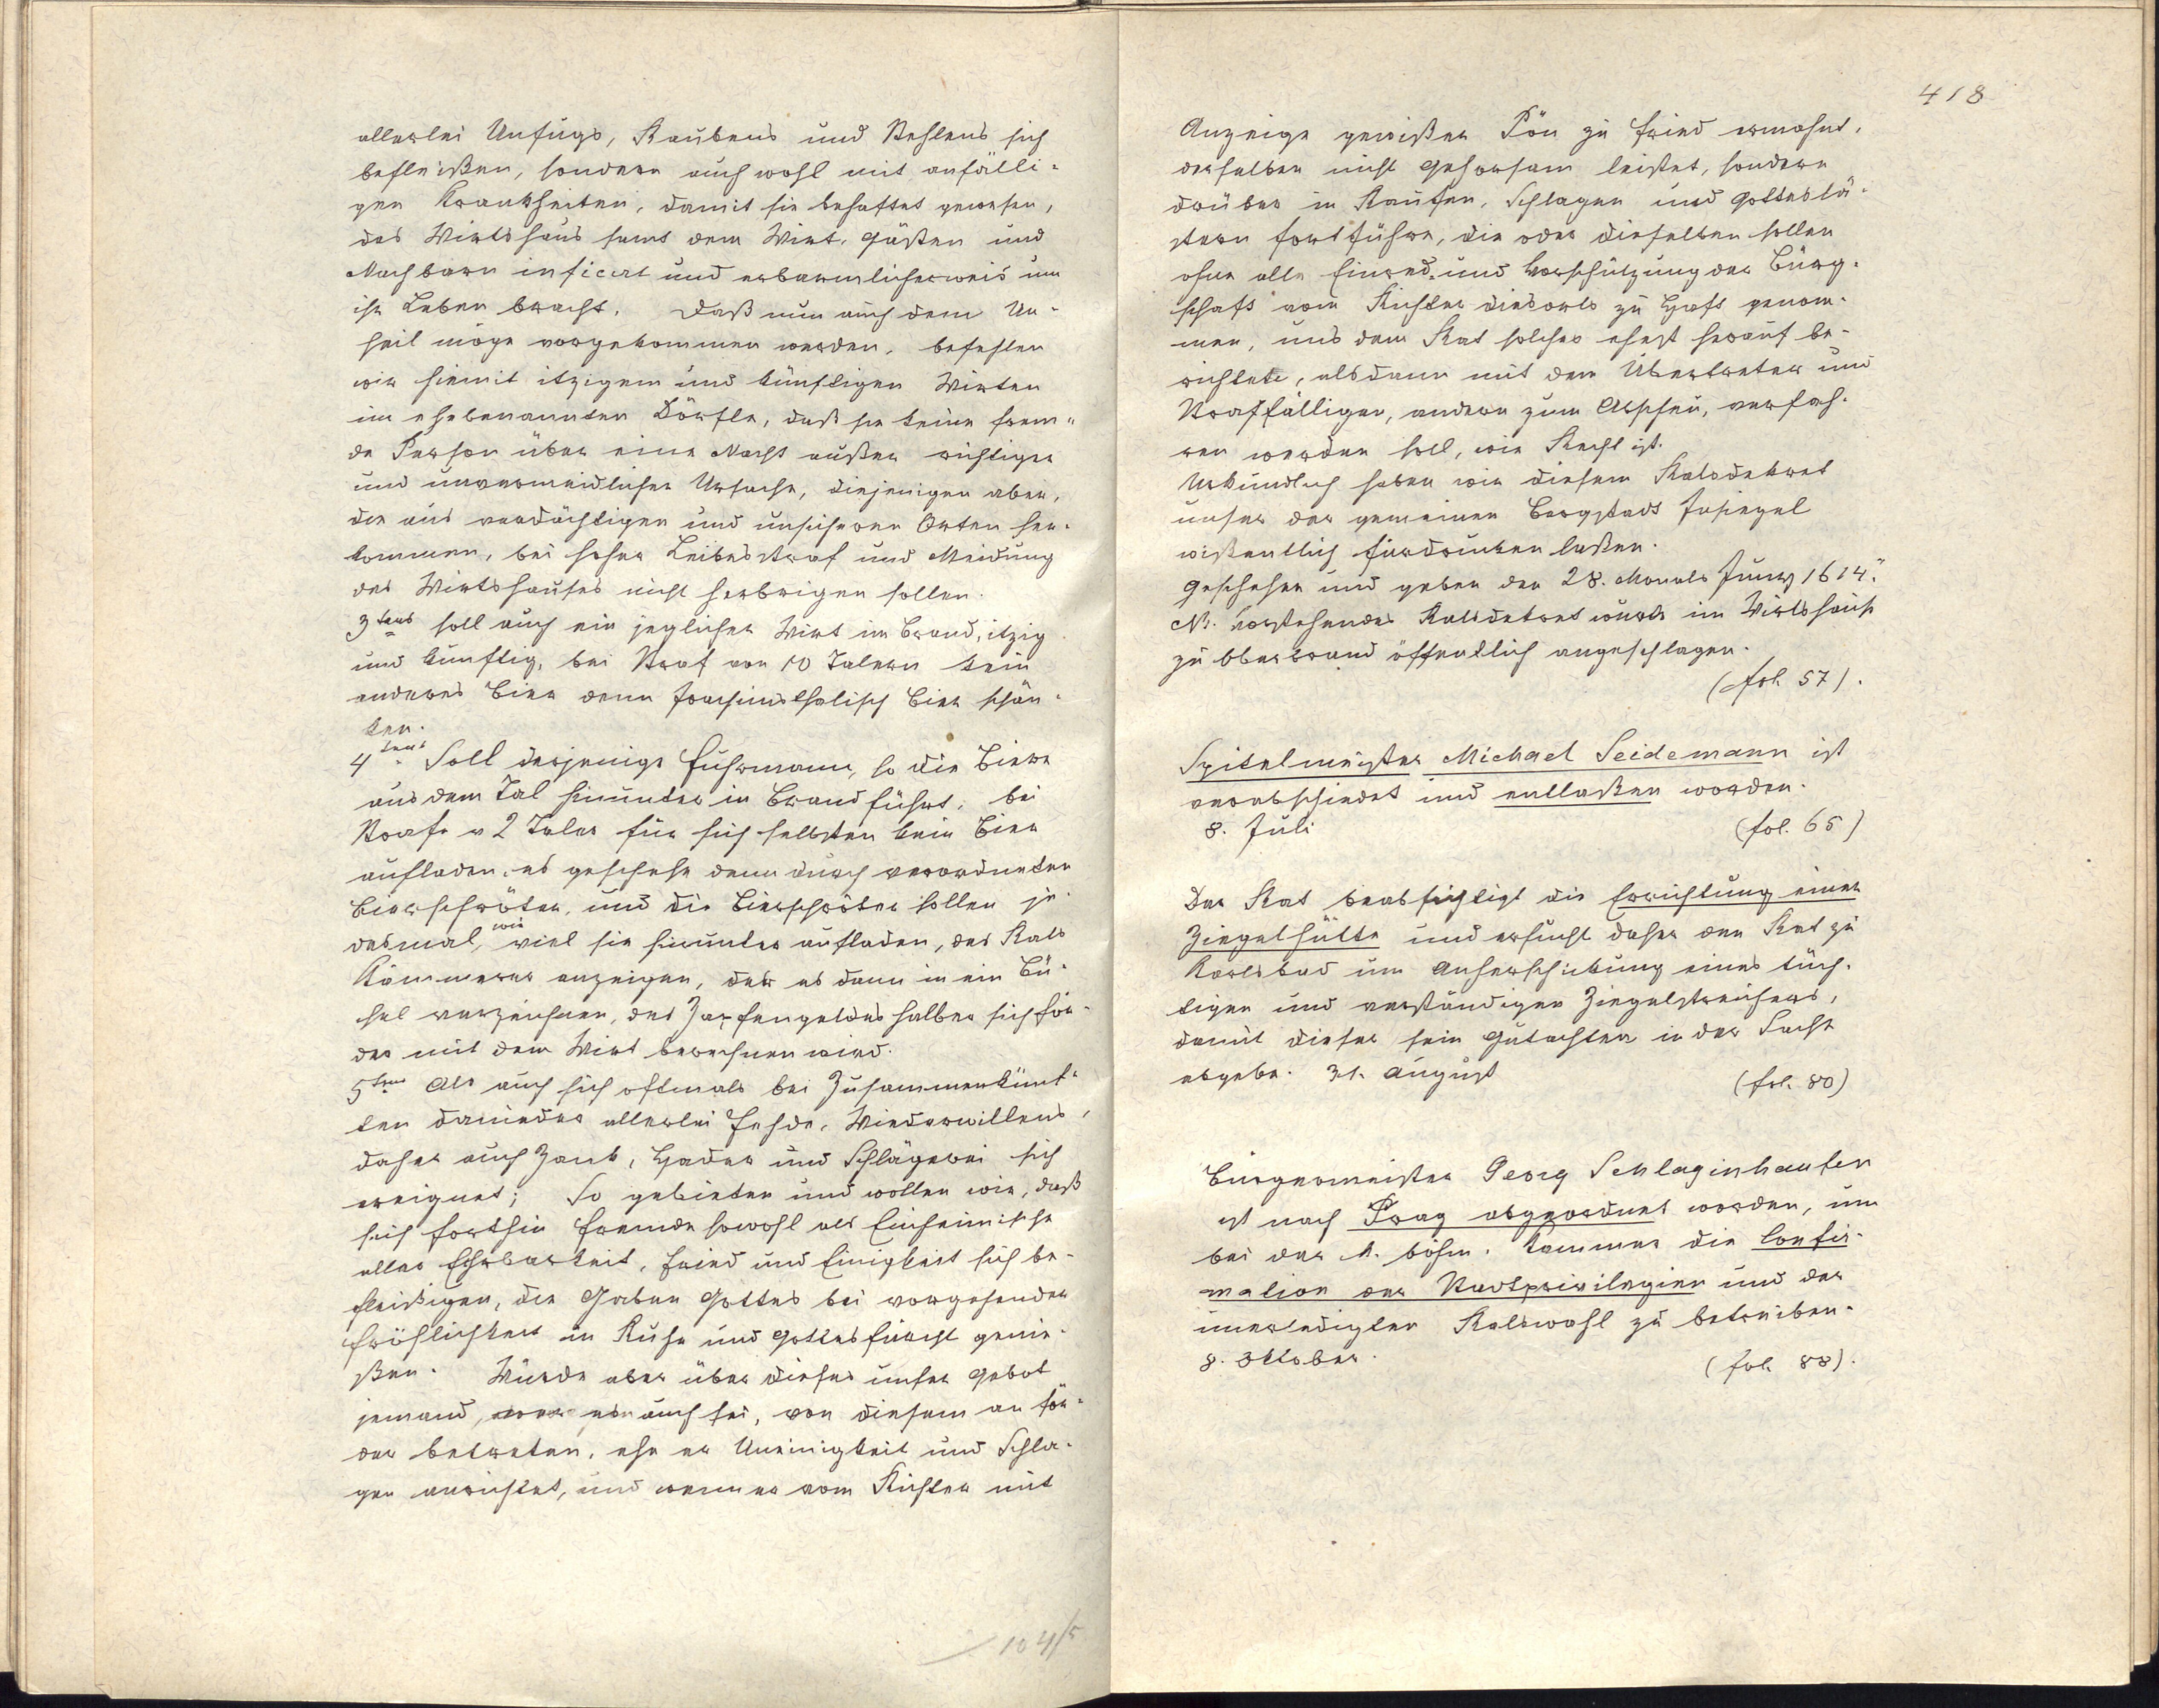 allerlei Unfugs, Raubens und Stehlens sich
befleißen, sondern auch wohl mit anfälli-
gen Krankheiten, damit sie behaftet gewesen,
das Wirtshaus samt dem Wirt, Gästen und
Nachbarn inficirt und erbarmlicherweis um
ihr Leben bracht. Daß nun auch dem Un-
heil möge vorgekommen werden, befehlen
wir hiemit itzigem und künftigen Wirten
im ehebenannten Dörfle, daß sie keine frem-
de Person über eine Nacht außer wichtiger
und unvermeidlicher Ursache, diejenigen aber,
die aus verdächtigen und unsicheren Orten her-
kommen, bei hoher Leibesstraf und Meidung
des Wirtshauses nicht herbrigen sollen.
3tens soll auch ein jeglicher Wirt im Brand, itzig
und künftig, bei Straf von 10 Talern kein
anderes Bier denn Joachimsthalisch Bier schän-
ken.
4tens Soll derjenige Fuhrmann, so die Biere
aus dem Tal hinunter in Brand führt, bei
Strafe v 2 Taler für sich selbsten kein Bier
aufladen, es geschehe denn durch verordneten
Bierschröter, und die Bierschröter sollen je-
desmal, wie viel sie hinunter aufladen, des Rats
Kämmerer anzeigen, der es dann in ein Bü-
chel verzeichnen, des Zapfengeldes halber sich för-
der mit dem Wirt berechnen wird.
5tens Als auch sich oftmals bei Zusammenkünf-
ten danieder allerlei Fehde, Wiederwillens,
daher auch Zank, Hader und Schlägerei sich
ereignet; So gebieten und wollen wir, daß
sich forthin Fremde sowohl als Einheimische
aller Ehrbarkeit, Fried und Einigkeit sich be-
fleißigen, die Gaben Gottes bei vorgehender
Fröhlichkeit in Ruhe und Gottesfurcht genie-
ßen. Würde aber über dieses unser Gebot
jemand, wer es auch sei, von diesem an för-
der betreten, ehe er Uneinigkeit und Schla-
gen anrichtet, und wenn er vom Richter mit
104/5
418
Anzeige gewißer Pön zu Fried ermahnt,
derselben nicht Gehorsam leistet, sondern
drüber in Raufen, Schlagen und Gotteslä-
stern fortführe, die oder dieselben sollen
ohne alle Einred. und Vorschützung der Bürg-
schaft vom Richter diesorts zu Haft genom-
men, uns dem Rat solches ehest herauf be-
richtete, alsdann mit dem Übertreter und
Straffälligen, andern zum Abscheu, verfah-
ren werden soll, wie Recht ist.
Urkundlich haben wir diesem Ratsdekret
unser der gemeinen Bergstadt Insiegel
wißentlich fürdrucken laßen.
Geschehen und geben den 28. Monats Juny 1614."
NB. Vorstehendes Ratsdekret wurde im Wirtshause
zu Oberbrand öffentlich angeschlagen.
(fol. 57).
Spitelmeister Michael Seidemann ist
verabschiedet und entlaßen worden.
8. Juli (fol. 65)
Der Rat beabsichtigt die Errichtung einer
Ziegelhütte und ersucht daher den Rat zu
Karlsbad um Anherschickung eines tüch-
tigen und verständigen Ziegelstreichers,
damit dieser sein Gutachten in der Sache
abgebe. 31. August (fol. 80)
Bürgermeister Georg Schlaginhaufen
ist nach Prag abgeordnet worden, um
bei der k. böhm. Kammer die Confir-
mation der Stadtprivilegien und der
unerledigten Ratswahl zu betreiben.
8. Oktober. (fol. 88).